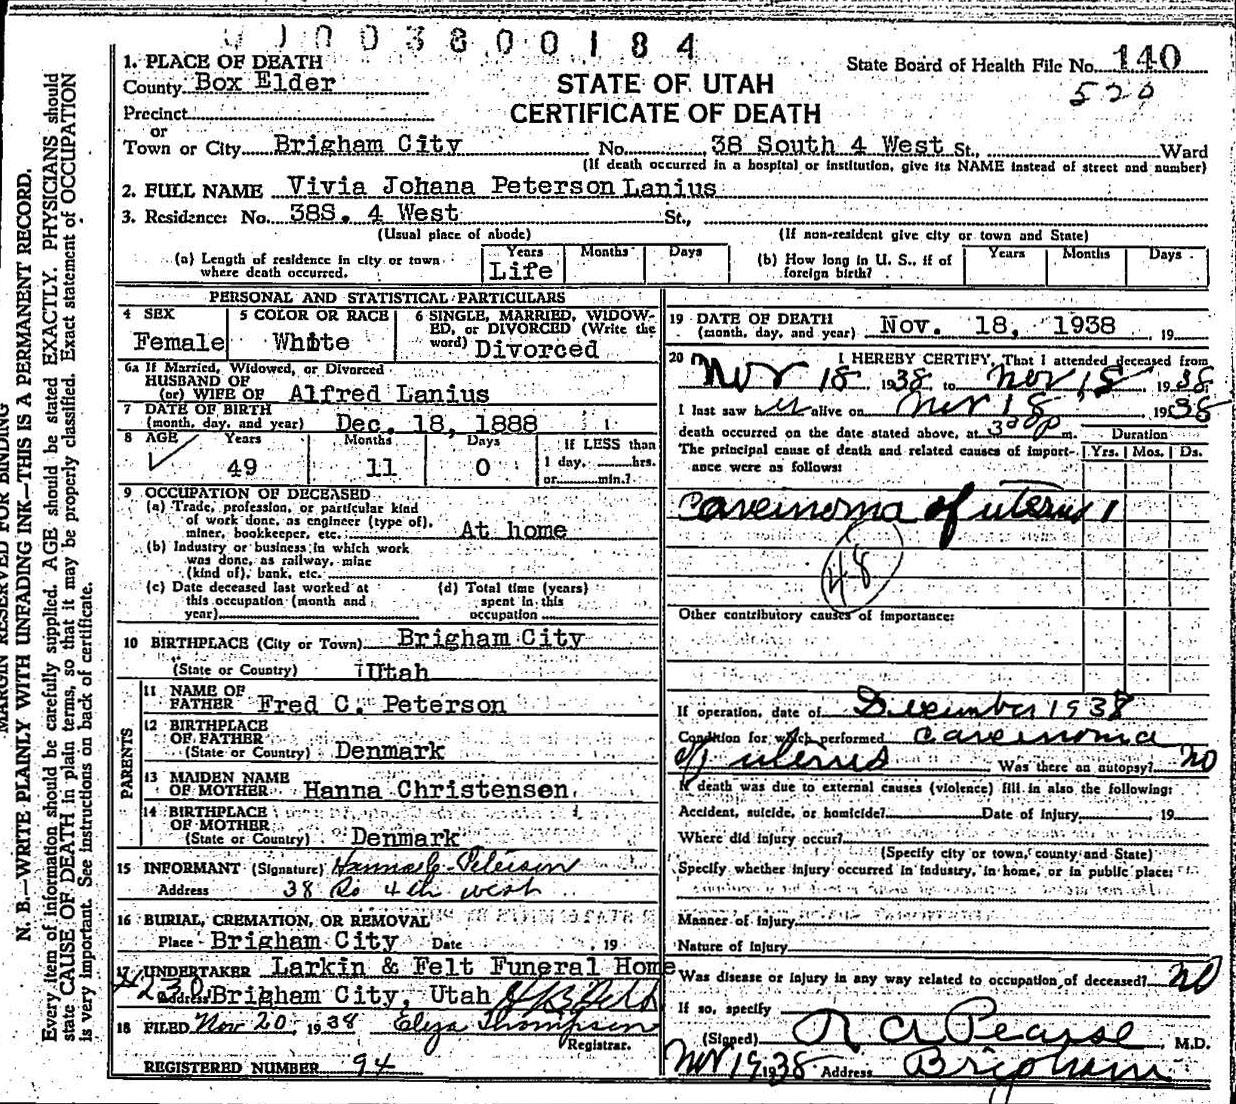 0100380 0184
1. PLACE OF DEATH
County Box Elder
Precinct
or
Town or City Brigham City No. 38 South 4 West St., Ward
(If death occurred in a hospital or institution, give its NAME instead of street and number)
STATE OF UTAH
CERTIFICATE OF DEATH
State Board of Health File No. 140
520
2. FULL NAME Vivia Johana Peterson Lanius
3. Residence: No. 38S. 4 West St.,
(Usual place of abode) (If non-resident give city or town and State)
(a) Length of residence in city or town where death occurred. Years Life Months Days
(b) How long in U. S., if of foreign birth? Years Months Days
PERSONAL AND STATISTICAL PARTICULARS
4 SEX Female
5 COLOR OR RACE White
6 SINGLE, MARRIED, WIDOWED, or DIVORCED (Write the word) Divorced
6a If Married, Widowed, or Divorced
HUSBAND OF
(or) WIFE OF Alfred Lanius
7 DATE OF BIRTH
(month, day, and year) Dec. 18, 1888
8 AGE Years 49 Months 11 Days 0 If LESS than 1 day, hrs. or min.?
9 OCCUPATION OF DECEASED
(a) Trade, profession, or particular kind
of work done, as engineer (type of),
miner, bookkeeper, etc. At home
(b) Industry or business in which work
was done, as railway, mine
(kind of), bank, etc.
(c) Date deceased last worked at
this occupation (month and
year)
(d) Total time (years)
spent in this
occupation
10 BIRTHPLACE (City or Town) Brigham City
(State or Country) Utah
PARENTS
11 NAME OF
FATHER Fred C. Peterson
12 BIRTHPLACE
OF FATHER
(State or Country) Denmark
13 MAIDEN NAME
OF MOTHER Hanna Christensen
14 BIRTHPLACE
OF MOTHER
(State or Country) Denmark
15 INFORMANT (Signature) Hanna C. Peterson
Address 38 So 4th West
16 BURIAL, CREMATION, OR REMOVAL
Place Brigham City Date , 19
17 UNDERTAKER Larkin & Felt Funeral Home
Address Brigham City, Utah
18 FILED Nov 20, 1938 Eliza Thompson
Registrar.
REGISTERED NUMBER 94
19 DATE OF DEATH
(month, day, and year) Nov. 18, 1938 , 19
20 I HEREBY CERTIFY, That I attended deceased from
Nov 18 1938 to Nov 18 1938
I last saw her alive on Nov 18 1938
death occurred on the date stated above, at 3 20 p m.
The principal cause of death and related causes of importance were as follows:
Duration
Yrs. Mos. Ds.
Carcinoma of uterus 1
48
Other contributory causes of importance:
If operation, date of December 1938
Condition for which performed carcinoma
of uterus Was there an autopsy? no
If death was due to external causes (violence) fill in also the following:
Accident, suicide, or homicide? Date of Injury , 19
Where did injury occur?
(Specify city or town, county and State)
Specify whether injury occurred in industry, in home, or in public place:
Manner of Injury
Nature of Injury
Was disease or injury in any way related to occupation of deceased? no
If so, specify
(Signed) R A Pearse, M.D.
Nov 19 1938 Address Brigham
MARGIN RESERVED FOR BINDING
N. B.—WRITE PLAINLY WITH UNFADING INK—THIS IS A PERMANENT RECORD.
Every item of information should be carefully supplied. AGE should be stated EXACTLY. PHYSICIANS should
state CAUSE OF DEATH in plain terms, so that it may be properly classified. Exact statement of OCCUPATION
is very important. See instructions on back of certificate.